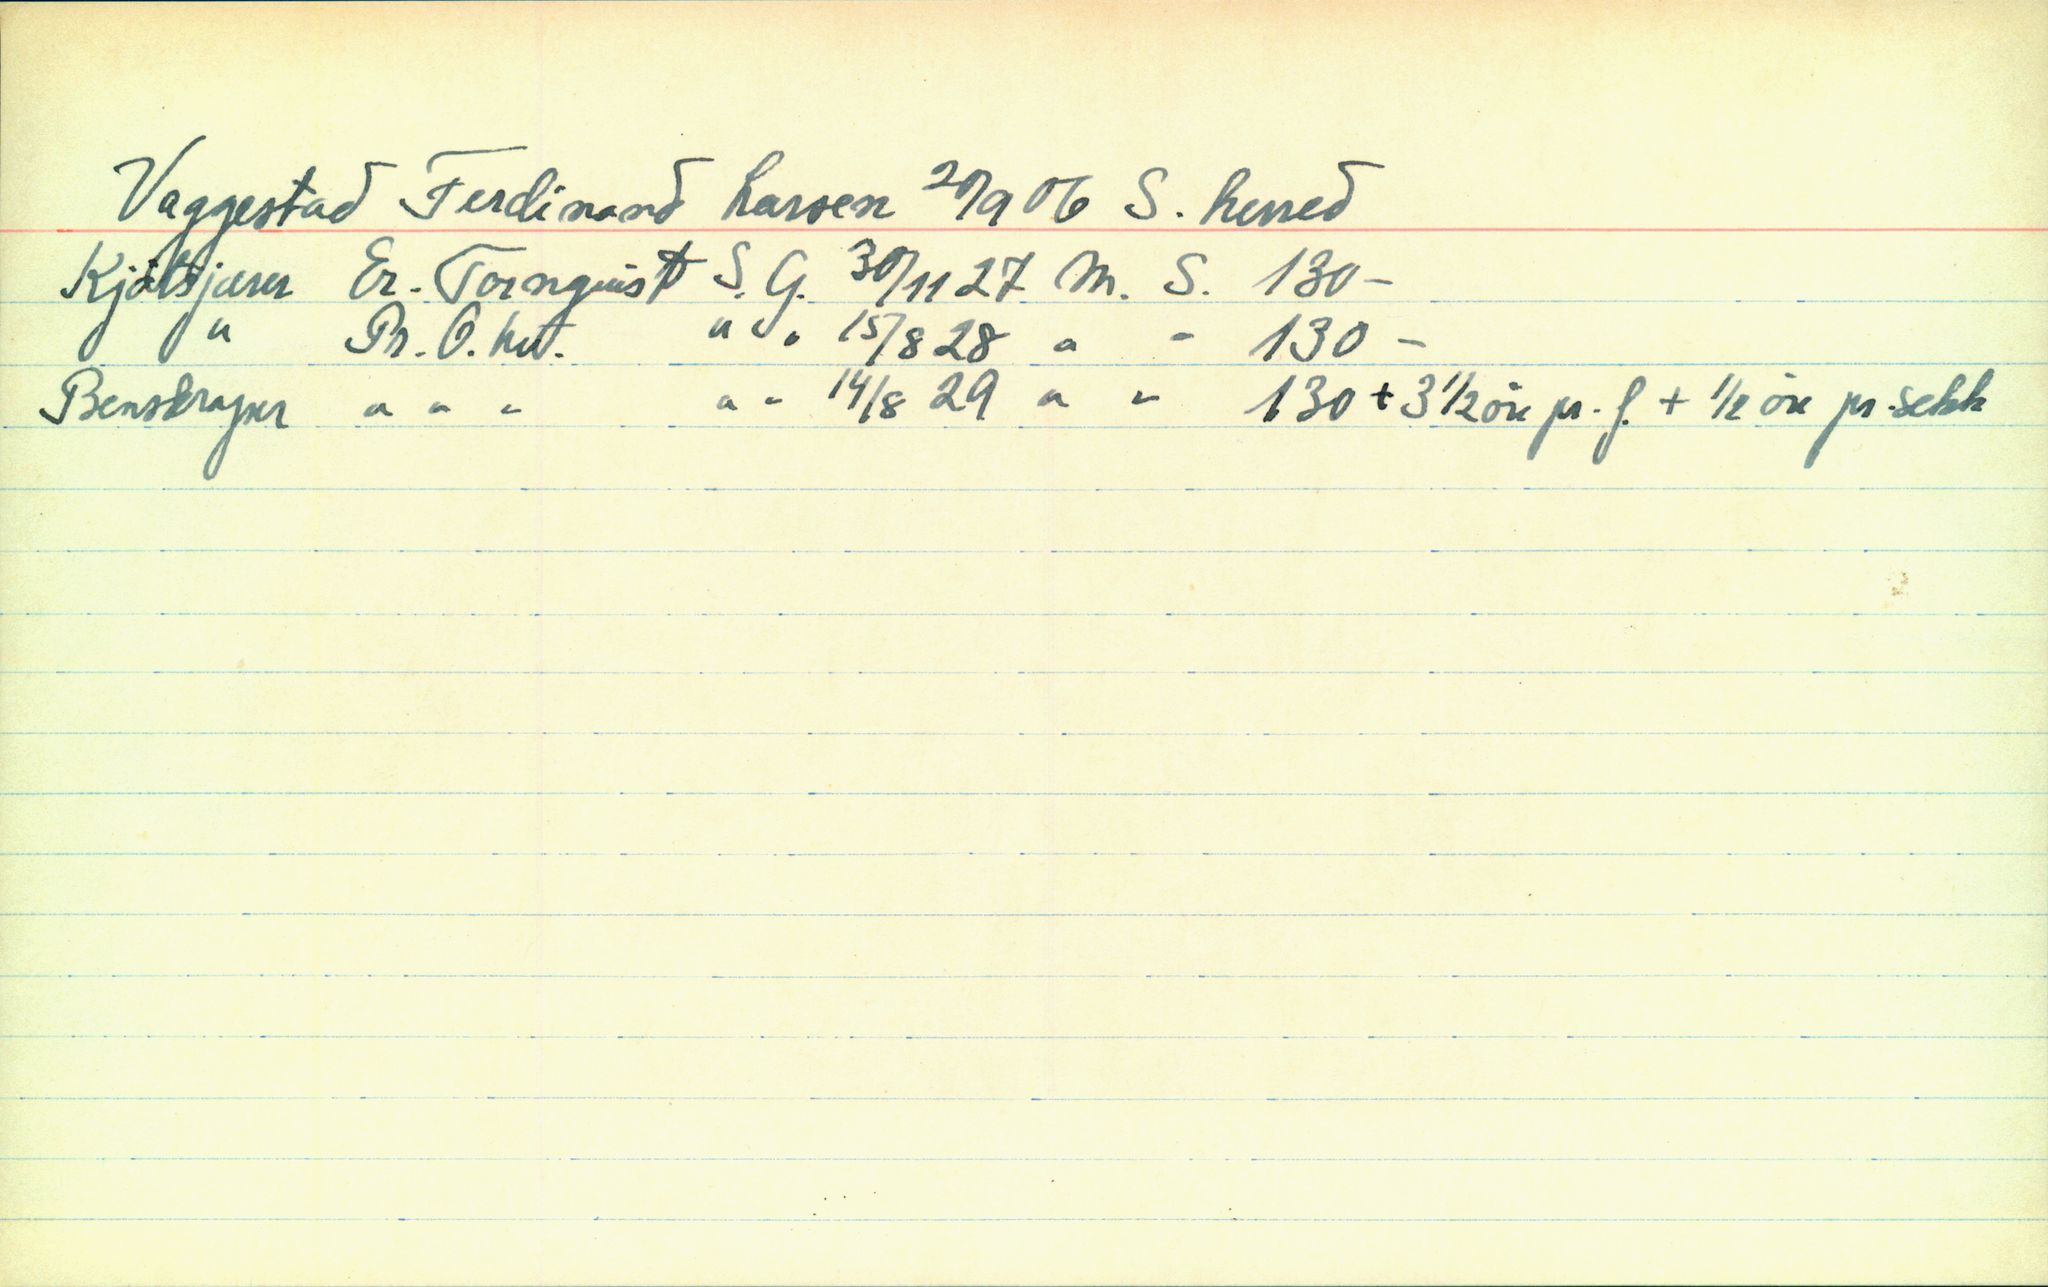 Vaggestad Ferdinand Larsen 20/9 06 S. herred
Kjøttskjærer Er. Tornquist S. G. 30/11 27 M. S. 130 -
" Pr. O. " " 15/8 28 " " 130 -
Benskraper " " " " " 14/8 29 " " 130 + 3 1/2 öre pr. f. + 1/2 öre pr. sekk